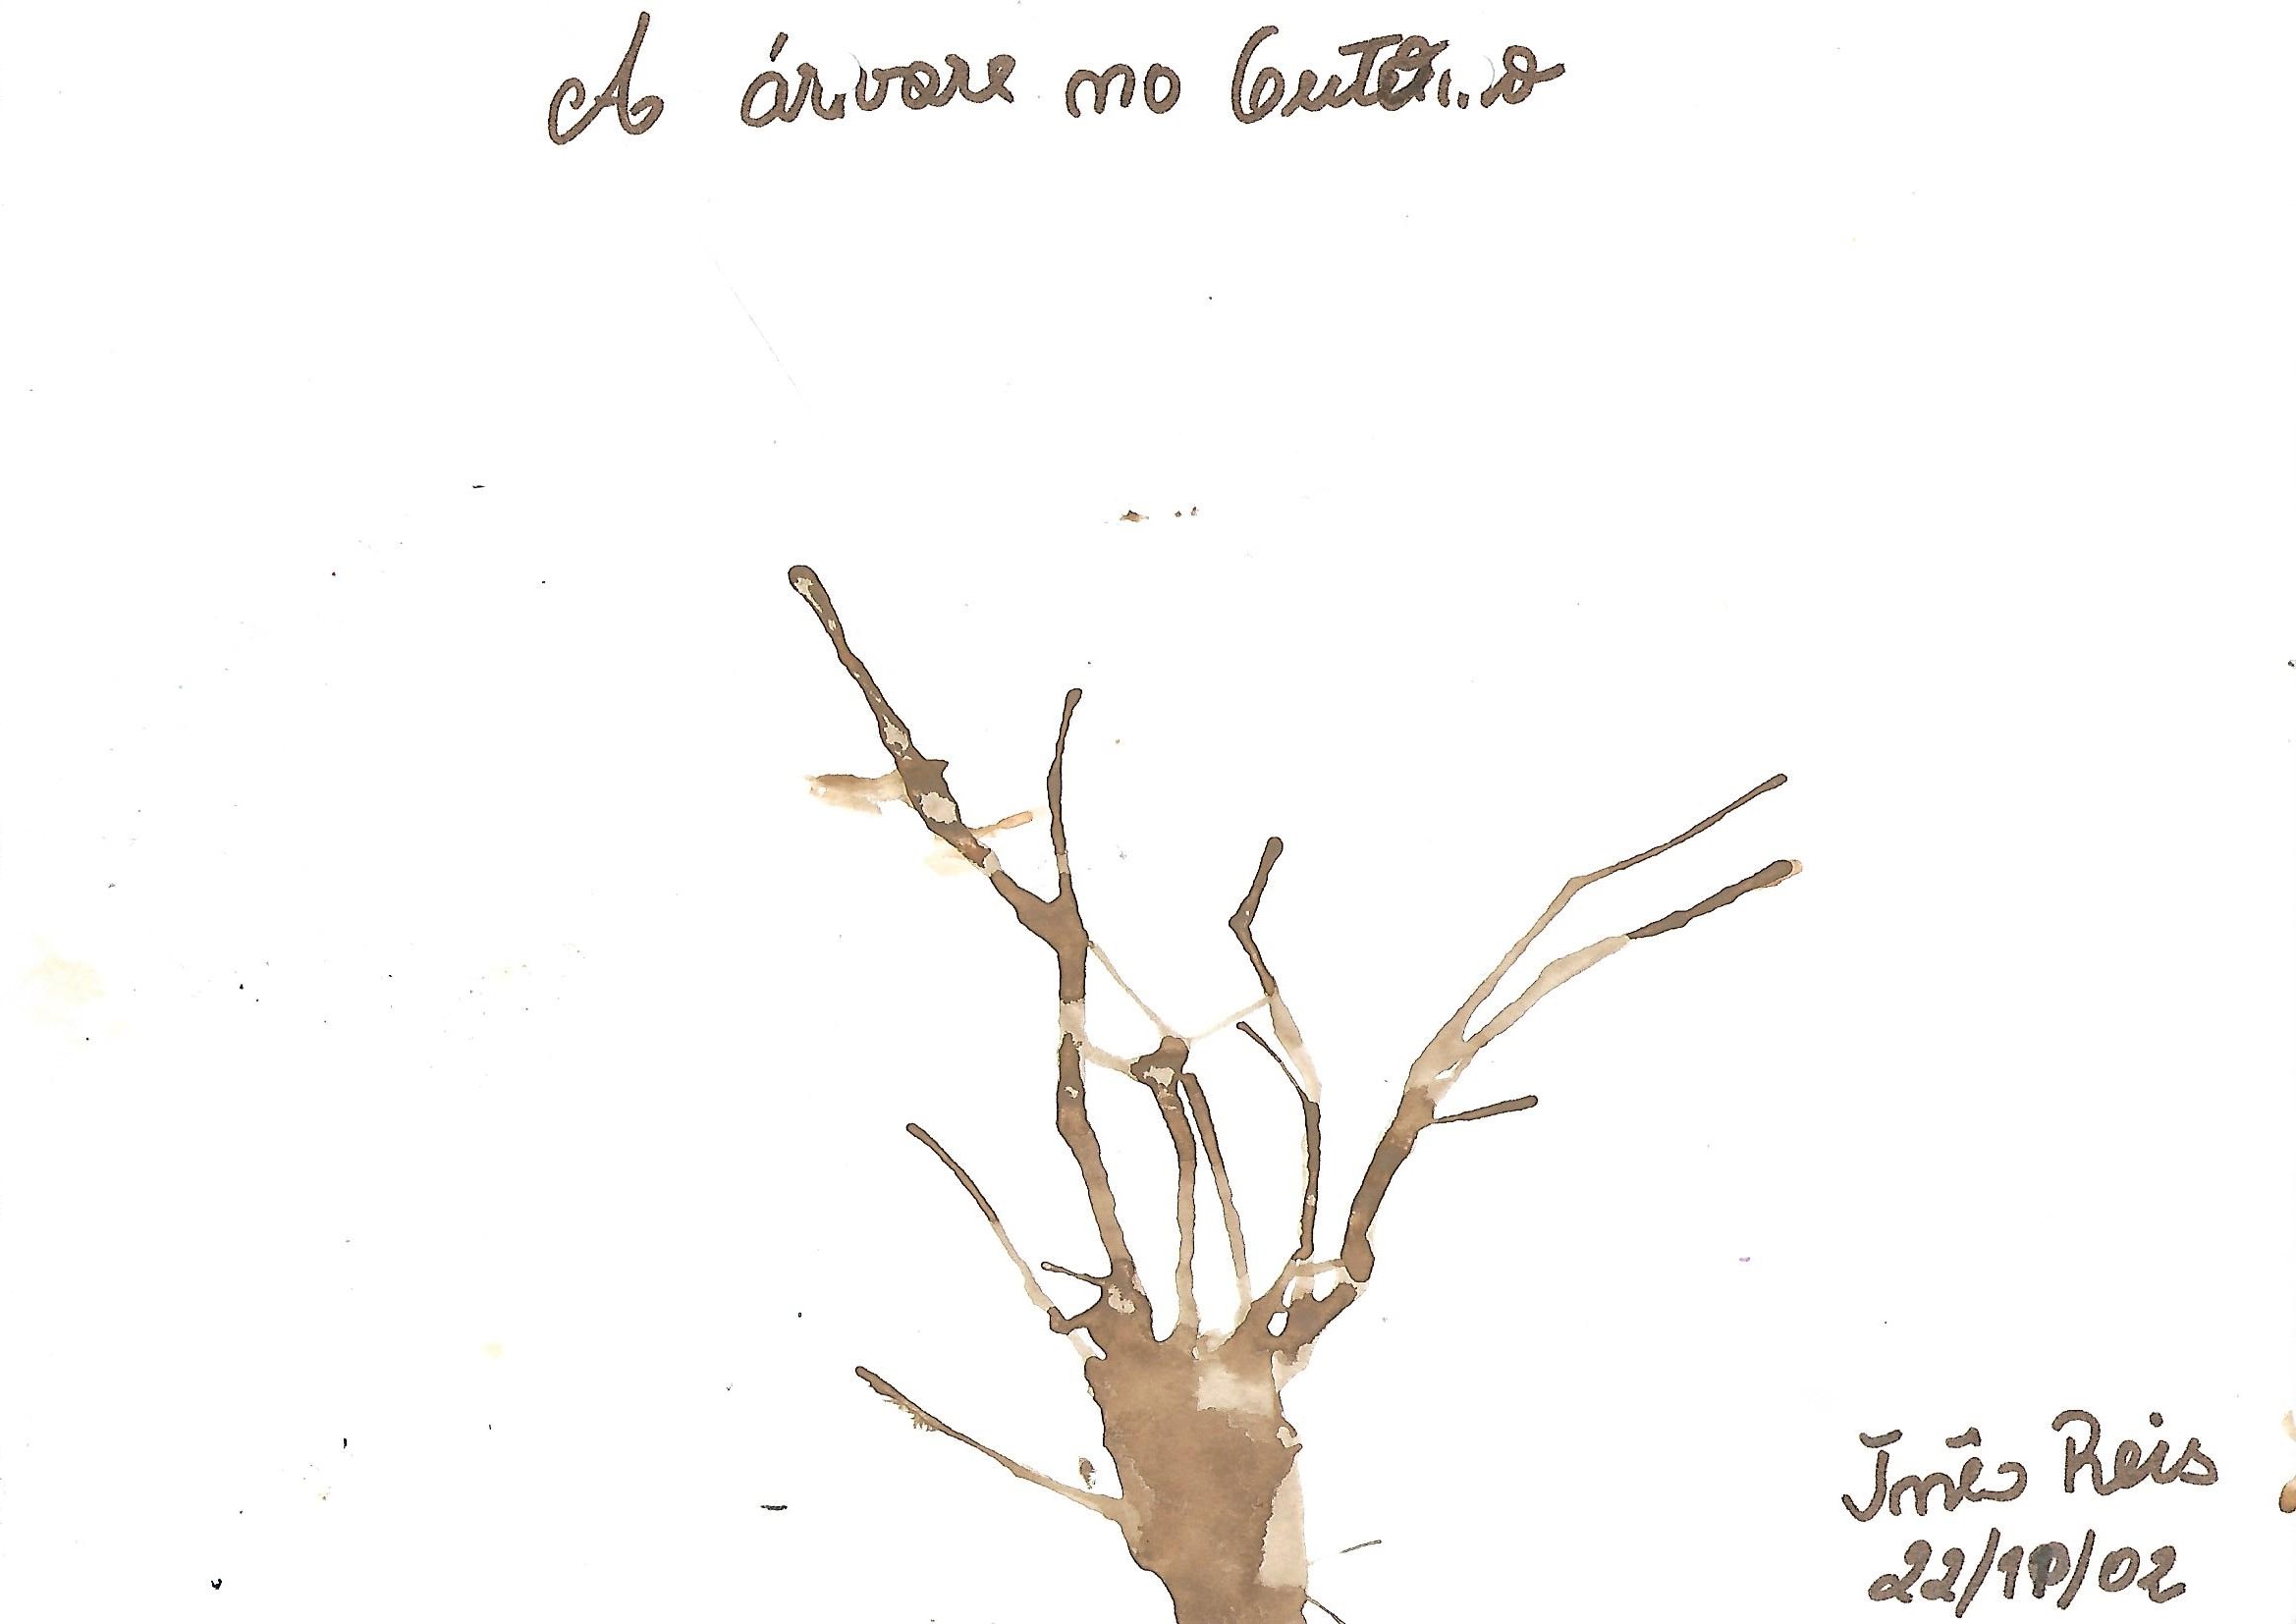 A árvore no Outono
Inês Reis
22/10/02